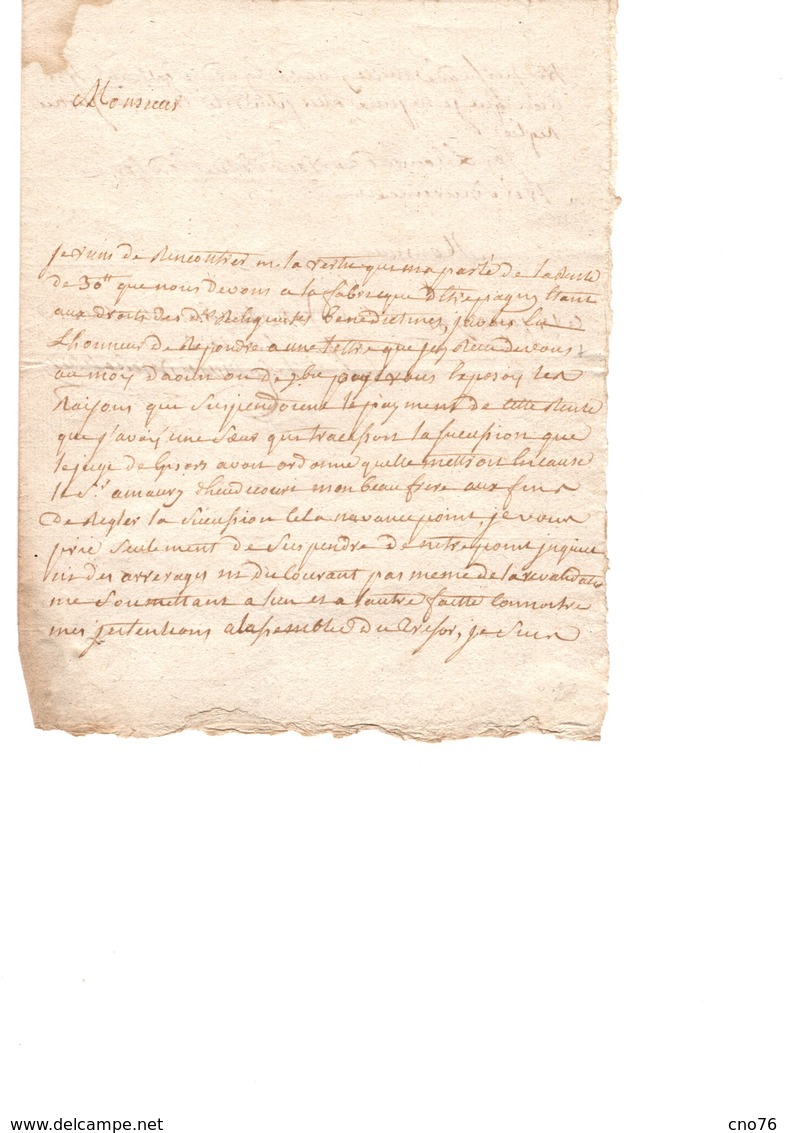 Monsieur
Je viens de Rencontrer m. la vertu que ma parlé de la Rente
de 30tt que nous devons a la fabrique
aux droits des ds Religieuses benedictines, j'avois Eu
Lhonneur de Repondre a une lettre que jey Receu de vous
au mois daout ou de 7bre vous Exposoy les
Raisons que Suspendoient le payment de cette Rente
que j'avois une Sœur qui tracassoit la sucession que
le juge de avoit ordonné quelle mettroit En cause
le Sr. amaury mon beau frere aux fins
de Regler la Sucession Cela navance point, je vous
prie Seulement de Suspendre
ni des arrerages ni du Courant pas meme de la
me Soumettant a lun et a lautre faitte Connoitre
mes pretentions a lassemblée du Tresor, je Suis
www.delcampe.net
cno76